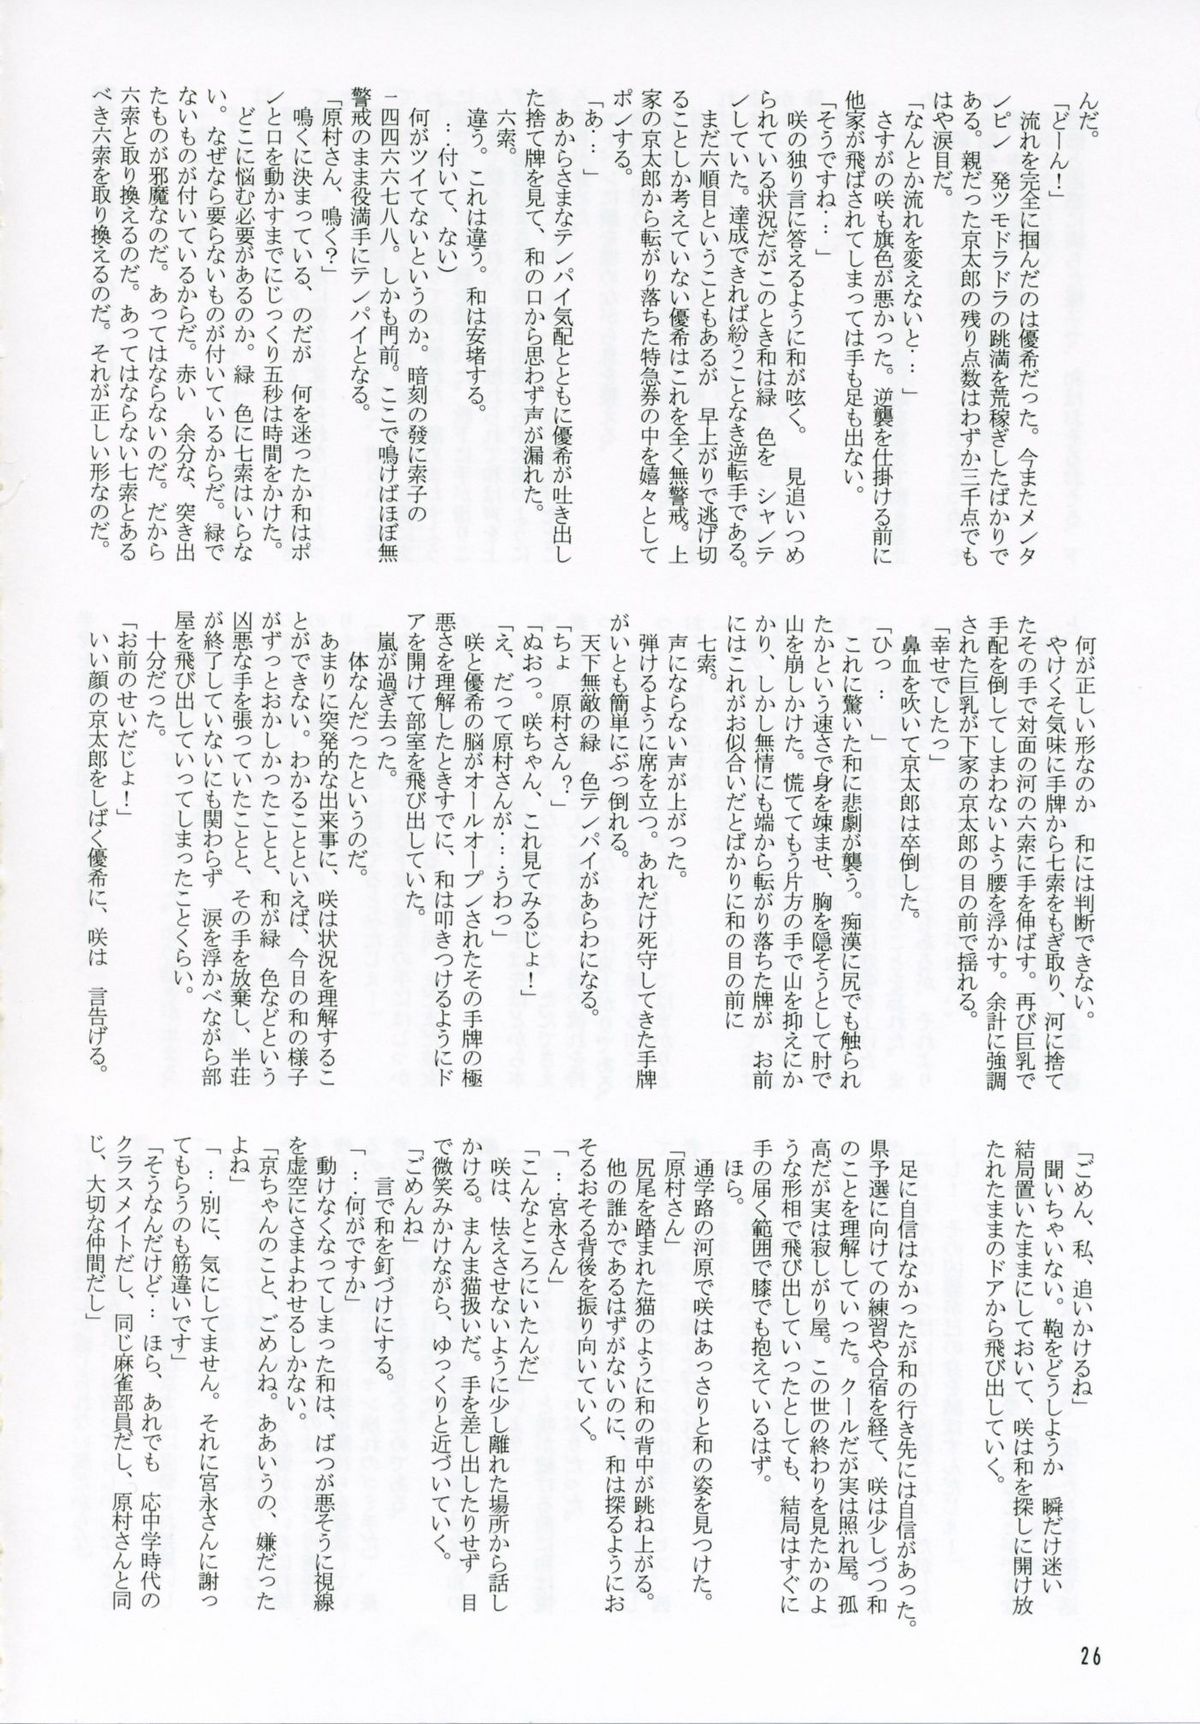 んだ。
「どーん！」
　流れを完全に掴んだのは優希だった。今またメンタ
ンピン　発ツモドラドラの跳満を荒稼ぎしたばかりで
ある。親だった京太郎の残り点数はわずか三千点でも
はや涙目だ。
「なんとか流れを変えないと…」
　さすがの咲も旗色が悪かった。逆襲を仕掛ける前に
他家が飛ばされてしまっては手も足も出ない。
「そうですね…」
　咲の独り言に答えるように和が呟く。　見追いつめ
られている状況だがこのとき和は緑　色を　シャンテ
ンしていた。達成できれば紛うことなき逆転手である。
　まだ六順目ということもあるが　早上がりで逃げ切
ることしか考えていない優希はこれを全く無警戒。上
家の京太郎から転がり落ちた特急券の中を嬉々として
ポンする。
「あ…」
　あからさまなテンパイ気配とともに優希が吐き出し
た捨て牌を見て、和の口から思わず声が漏れた。
　六索。
　違う。これは違う。和は安堵する。
　…付いて、ない）
　何がツイてないというのか。暗刻の發に索子の
二四四六六七八八。しかも門前。ここで鳴けばほぼ無
警戒のまま役満手にテンパイとなる。
「原村さん、鳴く？」
　鳴くに決まっている、のだが　何を迷ったか和はポ
ンと口を動かすまでにじっくり五秒は時間をかけた。
　どこに悩む必要があるのか。緑　色に七索はいらな
い。なぜなら要らないものが付いているからだ。緑で
ないものが付いているからだ。赤い　余分な、突き出
たものが邪魔なのだ。あってはならないのだ。だから
六索と取り換えるのだ。あってはならない七索とある
べき六索を取り換えるのだ。それが正しい形なのだ。
　何が正しい形なのか　和には判断できない。
　やけくそ気味に手牌から七索をもぎ取り、河に捨て
たその手で対面の河の六索に手を伸ばす。再び巨乳で
手配を倒してしまわないよう腰を浮かす。余計に強調
された巨乳が下家の京太郎の目の前で揺れる。
「幸せでしたっ」
　鼻血を吹いて京太郎は卒倒した。
「ひっ…」
　これに驚いた和に悲劇が襲う。痴漢に尻でも触られ
たかという速さで身を竦ませ、胸を隠そうとして肘で
山を崩しかけた。慌ててもう片方の手で山を抑えにか
かり、しかし無情にも端から転がり落ちた牌が　お前
にはこれがお似合いだとばかりに和の目の前に
　七索。
　声にならない声が上がった。
　弾けるように席を立つ。あれだけ死守してきた手牌
がいとも簡単にぶっ倒れる。
　天下無敵の緑　色テンパイがあらわになる。
「ちょ　原村さん？」
「ぬおっ。咲ちゃん、これ見てみるじょ！」
「え、だって原村さんが…うわっ」
　咲と優希の脳がオールオープンされたその手牌の極
悪さを理解したときすでに、和は叩きつけるようにド
アを開けて部室を飛び出していた。
　嵐が過ぎ去った。
　　体なんだったというのだ。
　あまりに突発的な出来事に、咲は状況を理解するこ
とができない。わかることといえば、今日の和の様子
がずっとおかしかったことと、和が緑　色などという
凶悪な手を張っていたことと、その手を放棄し、半荘
が終了していないにも関わらず　涙を浮かべながら部
屋を飛び出していってしまったことくらい。
　十分だった。
「お前のせいだじょ！」
　いい顔の京太郎をしばく優希に、咲は　言告げる。
「ごめん、私、追いかけるね」
　聞いちゃいない。鞄をどうしようか　瞬だけ迷い
結局置いたままにしておいて、咲は和を探しに開け放
たれたままのドアから飛び出していく。
　足に自信はなかったが和の行き先には自信があった。
県予選に向けての練習や合宿を経て、咲は少しづつ和
のことを理解していった。クールだが実は照れ屋。孤
高だが実は寂しがり屋。この世の終わりを見たかのよ
うな形相で飛び出していったとしても、結局はすぐに
手の届く範囲で膝でも抱えているはず。
　ほら。
　通学路の河原で咲はあっさりと和の姿を見つけた。
「原村さん」
　尻尾を踏まれた猫のように和の背中が跳ね上がる。
　他の誰かであるはずがないのに、和は探るようにお
そるおそる背後を振り向いていく。
「…宮永さん」
「こんなところにいたんだ」
　咲は、怯えさせないように少し離れた場所から話し
かける。まんま猫扱いだ。手を差し出したりせず　目
で微笑みかけながら、ゆっくりと近づいていく。
「ごめんね」
　　言で和を釘づけにする。
「…何がですか」
　動けなくなってしまった和は、ばつが悪そうに視線
を虚空にさまよわせるしかない。
「京ちゃんのこと、ごめんね。ああいうの、嫌だった
よね」
「…別に、気にしてません。それに宮永さんに謝っ
てもらうのも筋違いです」
「そうなんだけど…　ほら、あれでも　応中学時代の
クラスメイトだし、同じ麻雀部員だし、原村さんと同
じ、大切な仲間だし」
26